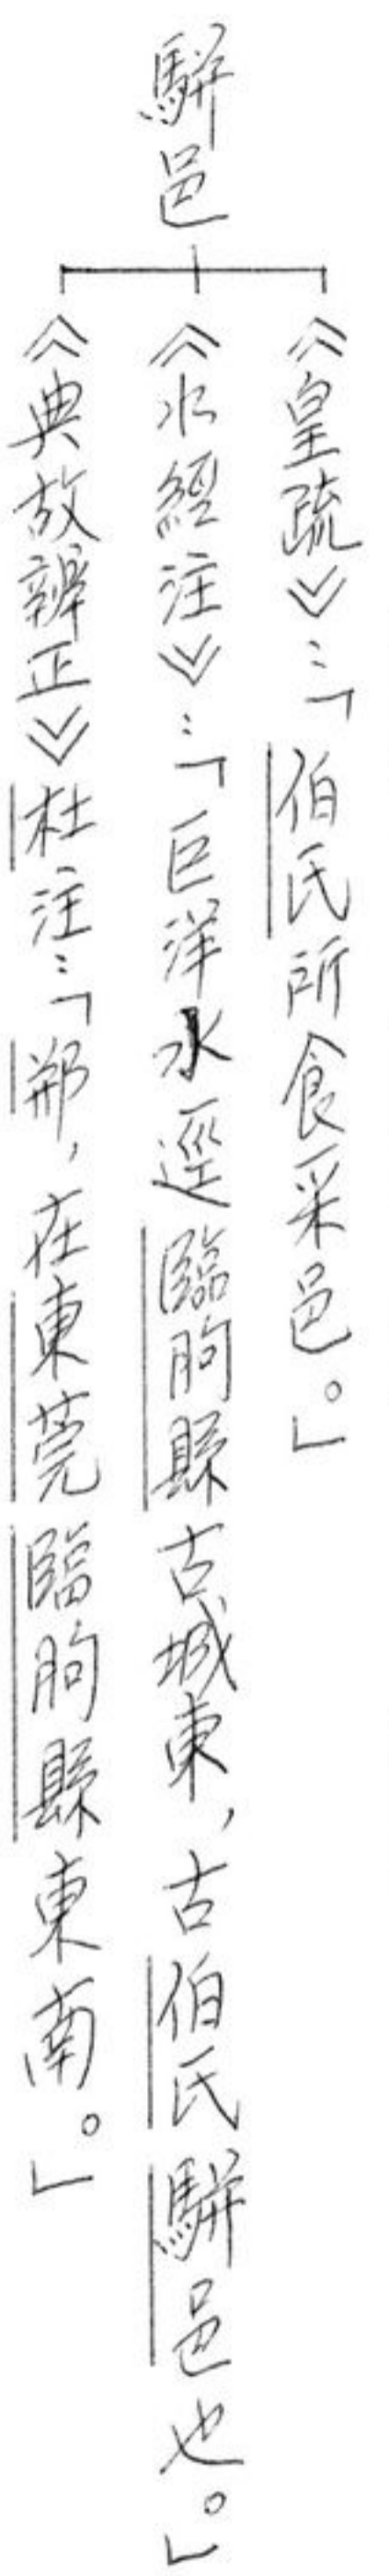 駢邑
《皇疏》：「伯氏所食采邑。」
《水經注》：「巨洋水逕臨朐縣古城東，古伯氏駢邑也。」
《典故辨正》杜注：「郱，在東莞臨朐縣東南。」